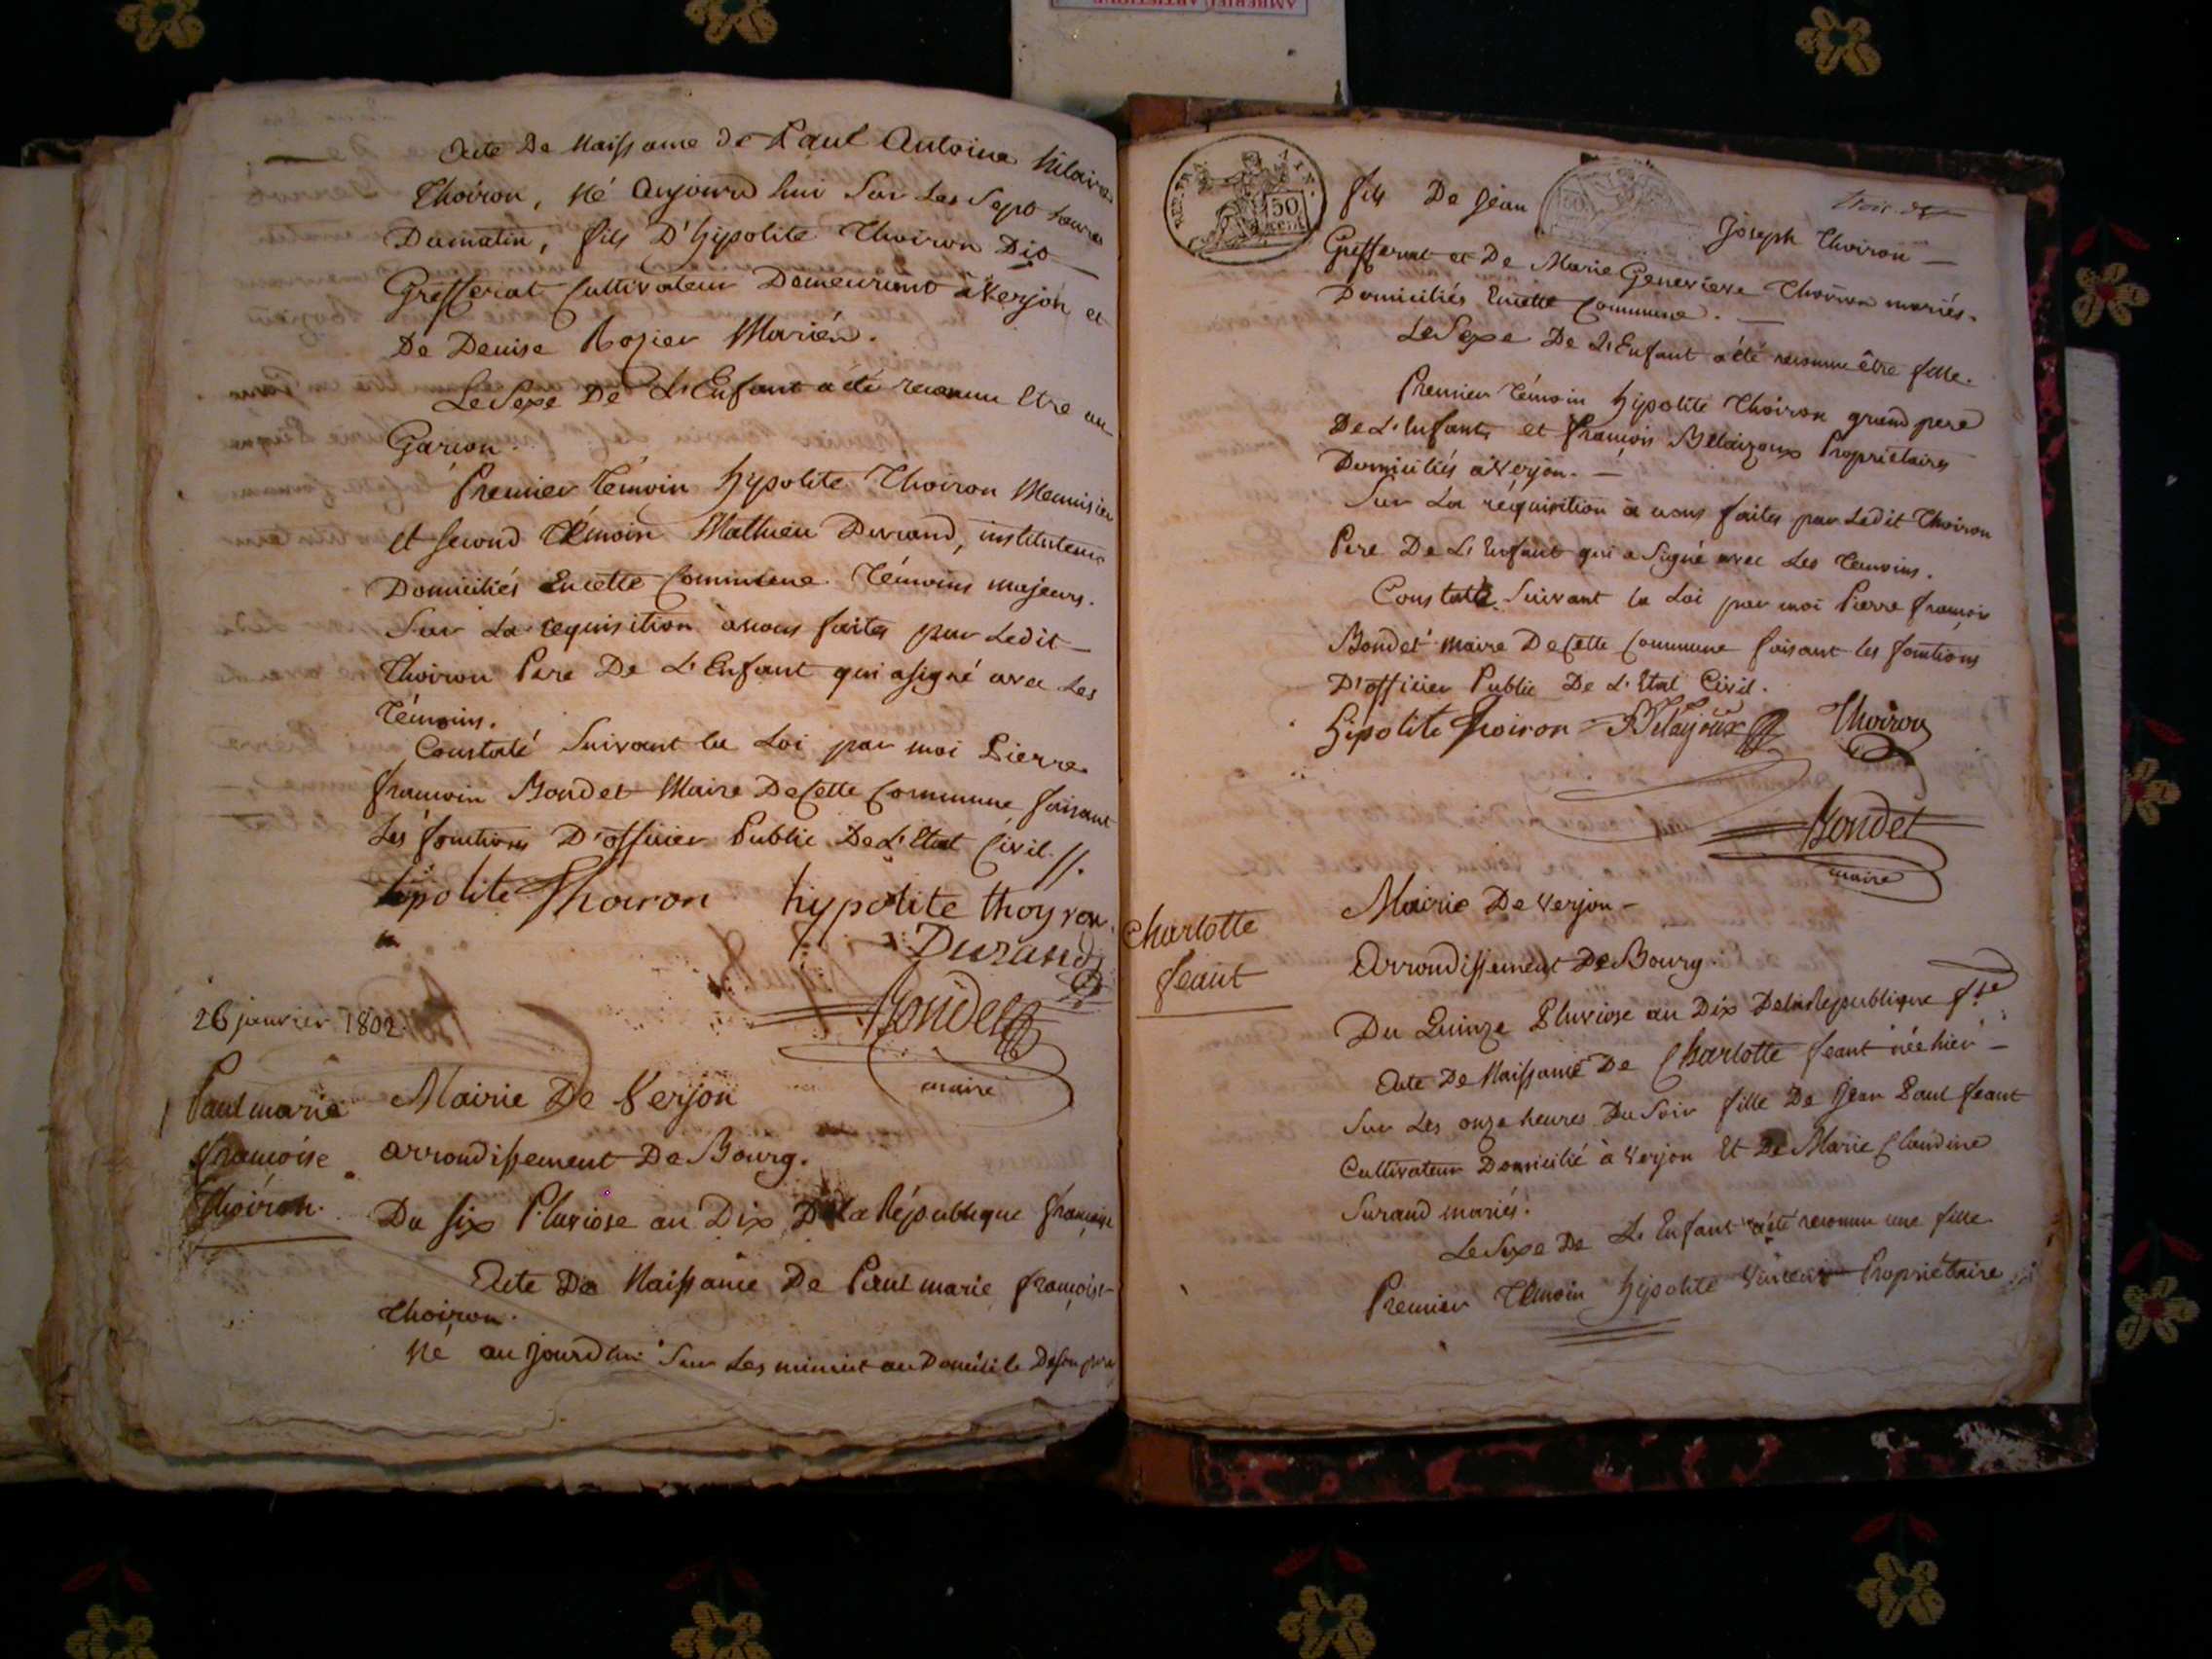 AMBERIEU ARTISTIQUE
Acte De Naissance de Paul Antoine hilaire
Thoiron, Né Aujourd hui Sur Les Sept heures
Dumatin, fils D'hipolite Thoiron Dit
Grefferat Cultivateur Demeurant à Verjon et
De Denise Rozier Mariés.
Le Sexe De L'Enfant a été reconnu Etre un
Garcon.
Premier témoin hypolite Thoiron Menuisier
et second témoin Mathieu Durand, instituteur
Domiciliés Encette Commune. Témoins majeurs.
Sur La requisition à nous faites par Ledit
Thoiron Pere De L'Enfant qui a signé avec Les
Témoins.
Constaté Suivant la Loi par moi Pierre
francois Bondet Maire De Cette Commune faisant
Les fonctions D'officier Public De L'Etat Civil.
hipolite Thoiron hypolite thoyron
Durand
Bondet
maire
26 janvier 1802.
Paul marie
francoise
Thoiron.
Mairie De Verjon
arrondissement De Bourg.
Du six Pluviose an Dix De la République française
Acte De Naissance De Paul marie françoise
Thoiron.
Né au jourdhui Sur Les minuit au Domicile De son pere
DEP. DE L'AIN.
50 cent
fils De Jean Joseph Thoiron
Grefferat et De Marie Genevieve Thoiron mariés.
Domiciliés Encette Commune.
Le Sexe De L'Enfant a été reconnu être fille.
Premier témoin hipolite Thoiron grand pere
De L'Enfant et François Propriétaires
Domiciliés à Verjon.
Sur La réquisition à nous faites par Ledit Thoiron
Pere De L'Enfant qui a Signé avec Les témoins.
Constaté Suivant la Loi par moi Pierre françois
Bondet maire De Cette Commune faisant les fonctions
D'officier Public De L'Etat Civil.
hipolite Thoiron Thoiron
Bondet
maire
Charlotte
feant
Mairie De Verjon
Arrondissement De Bourg.
Du Quinze Pluviose an Dix De la République f.se
Acte De Naissance De Charlotte feant née hier
Sur Les onze heures Du Soir fille De Jean Paul feant
Cultivateur Domicilié à Verjon Et De Marie Claudine
Surand mariés.
Le Sexe De L'Enfant a été reconnu une fille
Premier témoin hipolite Propriétaire